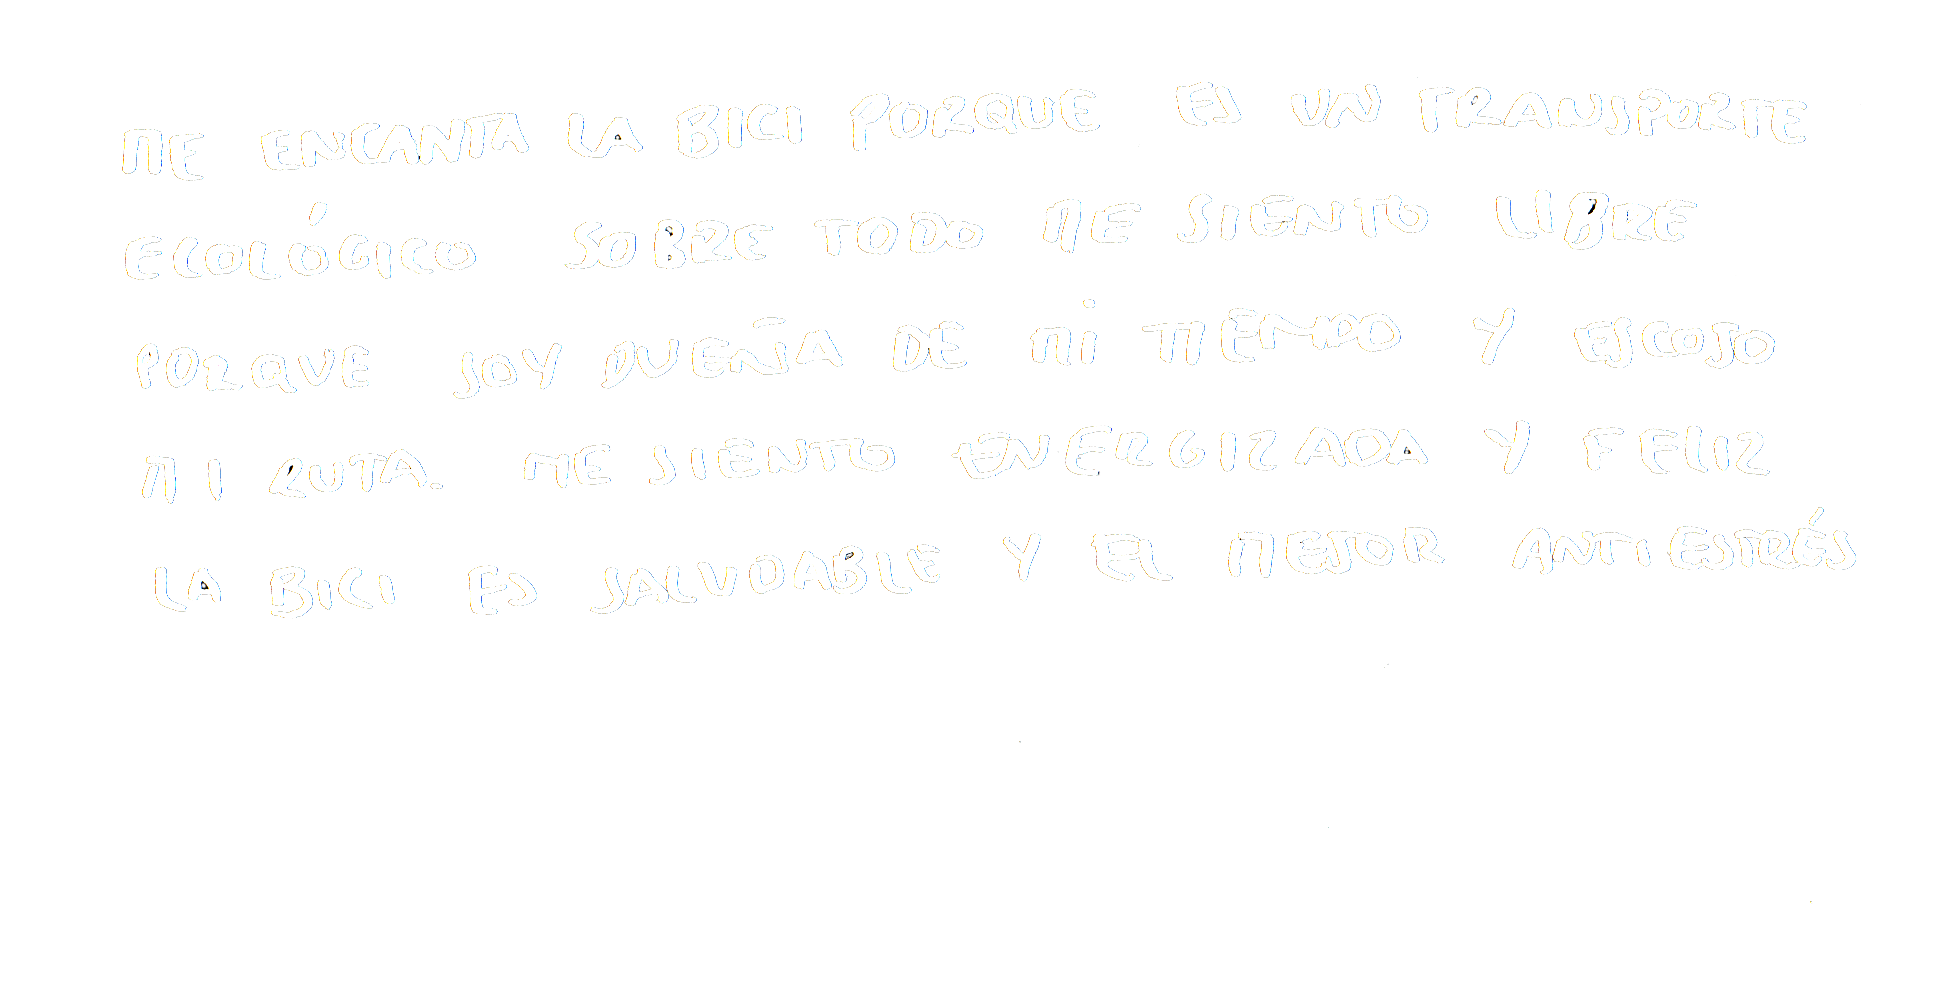 ME ENCANTA LA BICI PORQUE ES UN TRANSPORTE
ECOLÓGICO SOBRE TODO ME SIENTO LIBRE
PORQUE SOY DUEÑA DE MI TIEMPO Y ESCOJO
MI RUTA. ME SIENTO ENERGIZADA Y FELIZ
LA BICI ES SALUDABLE Y EL MEJOR ANTIESTRÉS